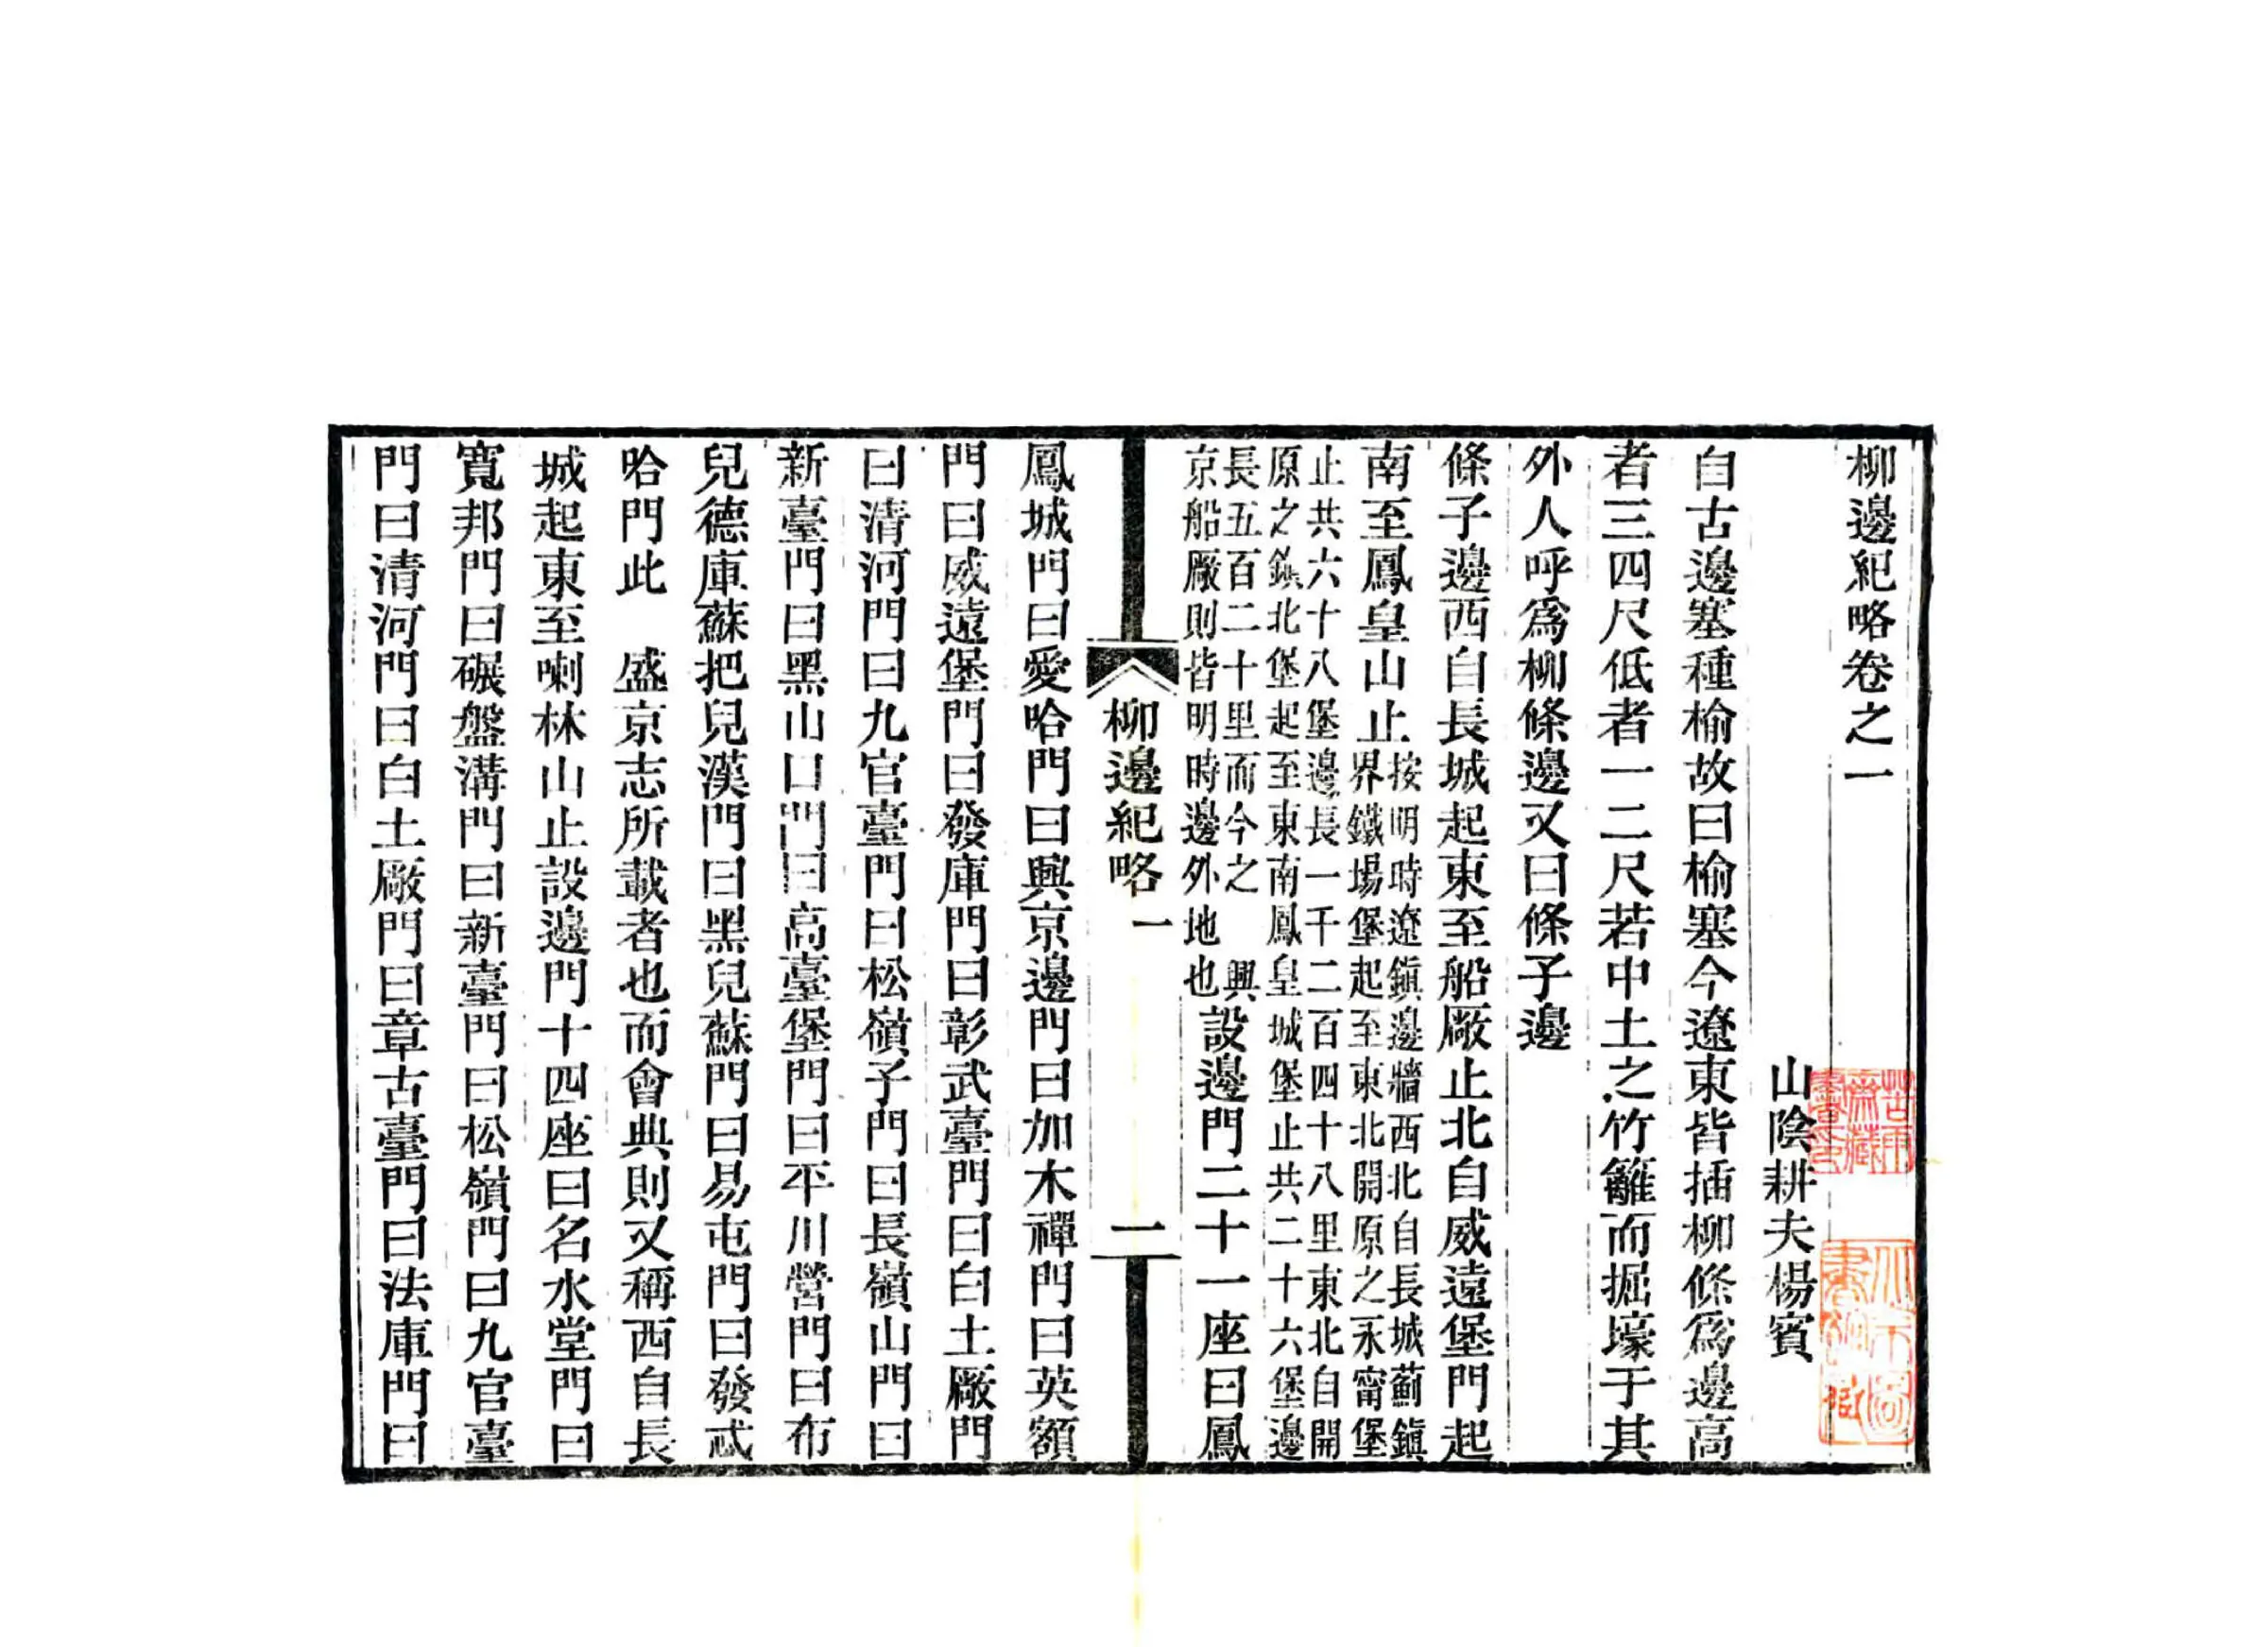 柳邊紀略卷之一
山陰耕夫楊賓
自古邊塞種榆故曰榆塞今遼東皆插柳條爲邊高
者三四尺低者一二尺若中土之竹籬而掘壕于其
外人呼爲柳條邊又曰條子邊
條子邊西自長城起東至船厰止北自威遠堡門起
南至鳳皇山止按明時遼鎮邊牆西北自長城薊鎮
界鐵場堡起至東北開原之永甯堡
止共六十八堡邊長一千二百四十八里東北自開
原之鎮北堡起至東南鳳皇城堡止共二十六堡邊
長五百二十里而今之　興
京船厰則皆明時邊外地也設邊門二十一座曰鳳
柳邊紀略一
二
鳳城門曰愛哈門曰興京邊門曰加木禪門曰英額
門曰威遠堡門曰發庫門曰彰武臺門曰白土厰門
曰清河門曰九官臺門曰松嶺子門曰長嶺山門曰
新臺門曰黑山口門曰高臺堡門曰平川營門曰布
兒德庫蘇把兒漢門曰黑兒蘇門曰易屯門曰發忒
哈門此　盛京志所載者也而會典則又稱西自長
城起東至喇林山止設邊門十四座曰名水堂門曰
寬邦門曰碾盤溝門曰新臺門曰松嶺門曰九官臺
門曰清河門曰白土厰門曰章古臺門曰法庫門曰